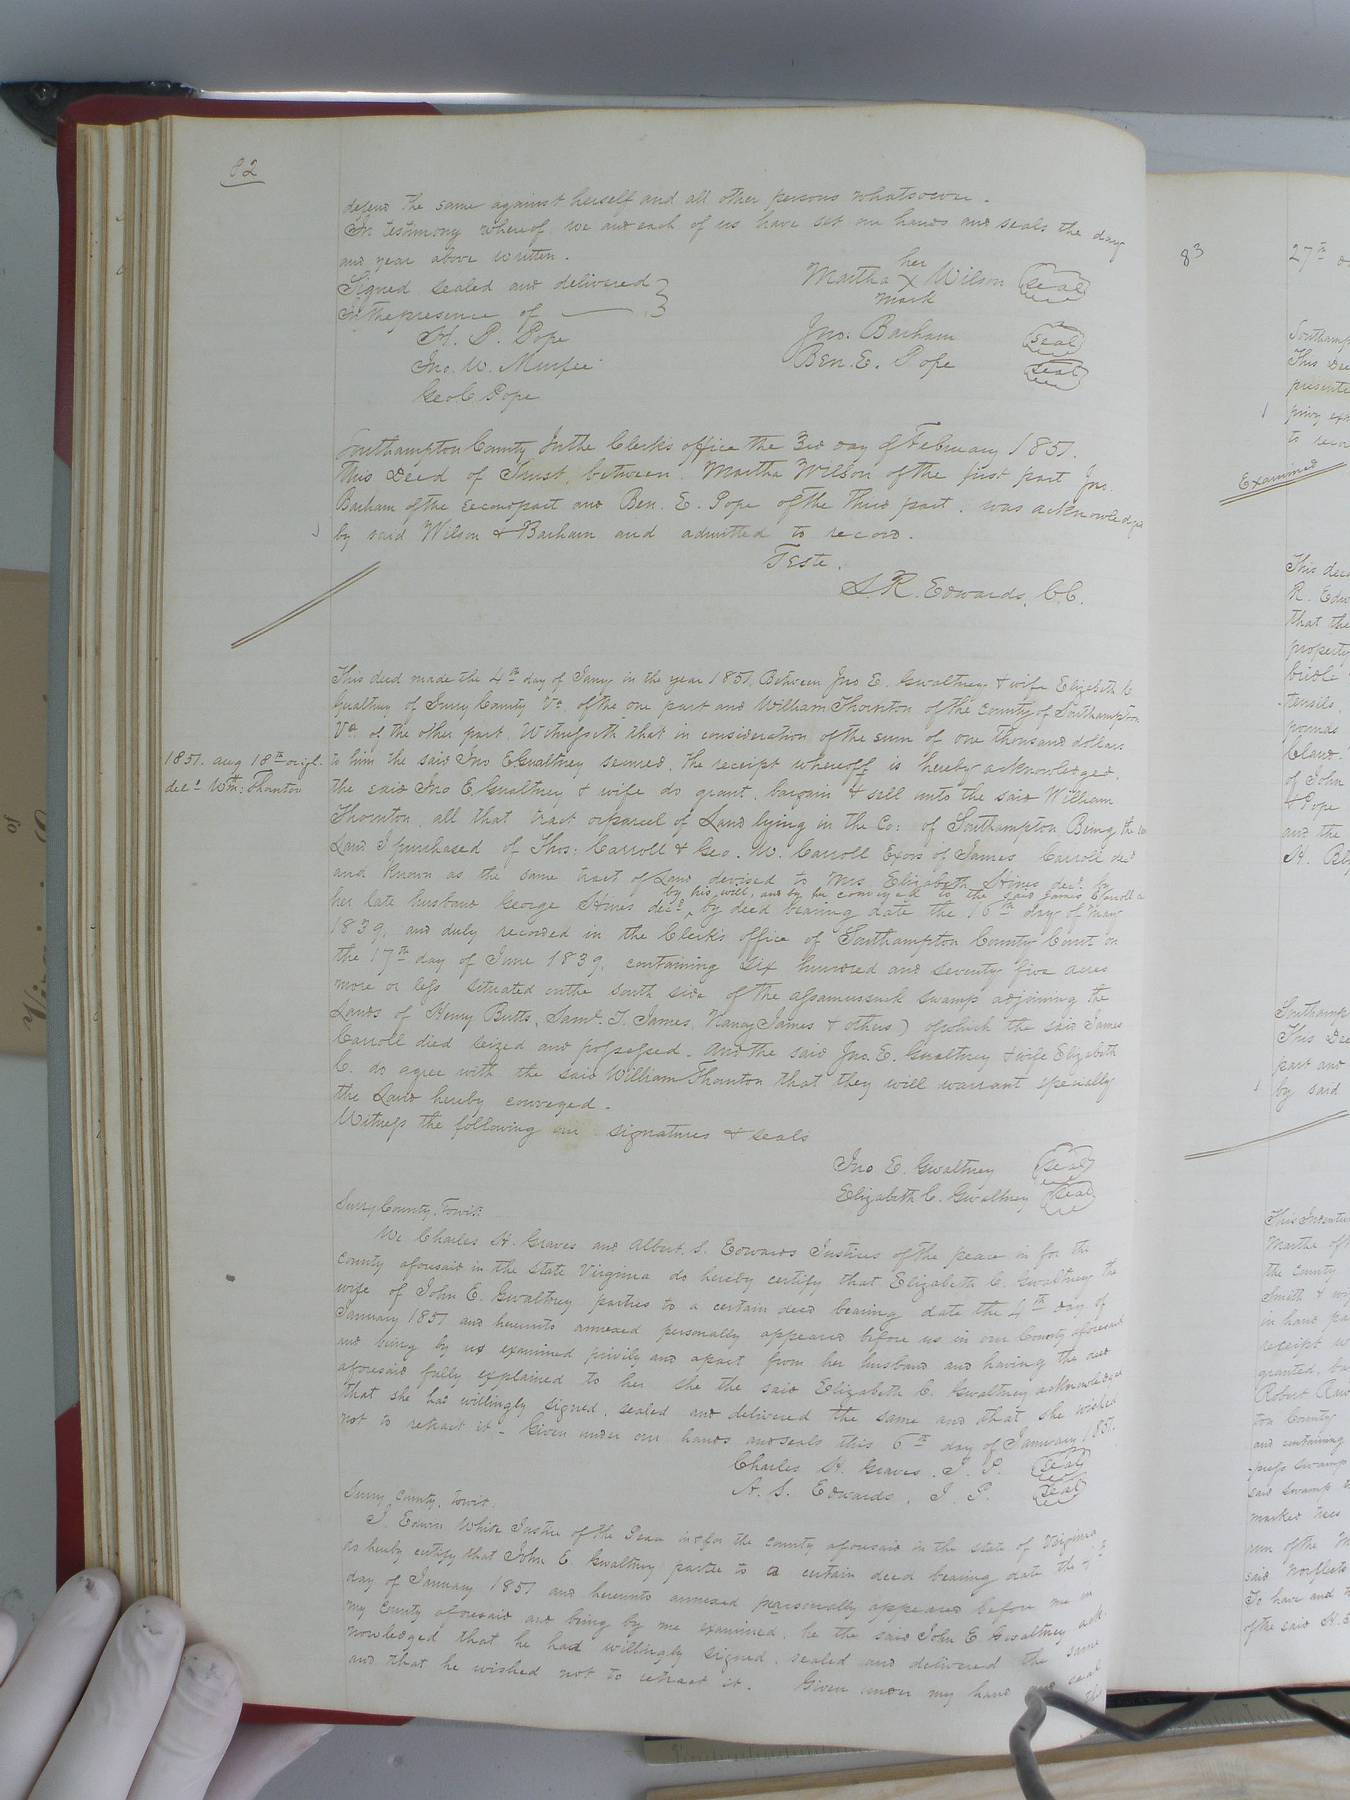 82
defend the same against herself and all other persons whatsoever.
In testimony whereof we and each of us have set our hands and seals the day
and year above written.
Signed sealed and delivered }
In the presence of }
her
Martha X Wilson seal
mark
H. P. Pope
Jno. Barham seal
Jno. W. Murfee
Ben. E. Pope seal
Geo C. Pope
Southampton County In the Clerk's office the 3rd day of February 1851.
This Deed of Trust between Martha Wilson of the first part Jno.
Barham of the second part and Ben. E. Pope of the third part. was acknowledged
by said Wilson & Barham and admitted to record.
Teste.
S. R. Edwards, C.C.
This deed made the 4th day of Jany in the year 1851, Between Jno E. Gwaltney & wife Elizabeth C.
Gwaltney of Surry County Va. of the one part and William Thornton of the County of Southampton
Va. of the other part. Witnesseth that in consideration of the sum of one thousand dollars
1851. aug 18th origl.
deld Wm: Thornton
to him the said Jno E. Gwaltney secured, the receipt whereoff is hereby acknowledged.
the said Jno E. Gwaltney & wife do grant, bargain & sell unto the said William
Thornton all that tract or parcel of Land lying in the Co: of Southampton Being the
Land I purchased of Thos: Carroll & Geo. W. Carroll Exors of James Carroll decd
and known as the same tract of Land devised to Mrs Elizabeth Hines decd. by
by his will, and by her conveyed to the said James Carroll
her late husband George Hines decd. ^ by deed bearing date the 16th day of May
1839, and duly recorded in the Clerk's office of Southampton County Court on
the 17th day of June 1839, containing six hundred and seventy five acres
more or less situated on the south side of the assamussuck swamp adjoining the
Lands of Henry Butts, Saml. T. James, Nancy James & others) of which the said James
Carroll died seized and possessed. And the said Jno. E. Gwaltney & wife Elizabeth
C. do agree with the said William Thornton that they will warrant specially
the Land hereby conveyed.
Witness the following our signatures & seals
Jno E. Gwaltney seal
Elizabeth C. Gwaltney seal
Surry County, Towit:
We Charles H. Graves and Albert S. Edwards Justices of the peace in for the
County aforesaid in the State Virginia do hereby certify that Elizabeth C. Gwaltney the
wife of John E. Gwaltney parties to a certain deed bearing date the 4th day of
January 1851 and hereunto annexed personally appeared before us in our County aforesaid
and being by us examined privily and apart from her husband and having the deed
aforesaid fully explained to her she the said Elizabeth C. Gwaltney acknowledged
that she had willingly signed, sealed and delivered the same and that she wished
not to retract it - Given under our hands and seals this 6th day of January 1851.
Charles H. Graves. J. P. seal
A. S. Edwards, J. P. seal
Surry County, Towit:
I. Edwin White Justice of the Peace in & for the County aforesaid in the State of Virginia
do hereby certify that John E Gwaltney partee to a certain deed bearing date the 4th
day of January 1851 and hereunto annexed personally appeared before me in
my County aforesaid and being by me examined, he the said John E. Gwaltney ack-
nowledged that he had willingly signed, sealed and delivered the same
and that he wished not to retract it. Given under my hand and seal
this
83
27th
Southamp
This Dee
presente
privy exa
to recor
Examined
This dee
R. Edw
that the
property
bridle
tensils,
pounds
Claud
of John
& Pope
and the
Southamp
This Dee
part and
by said
This Indentu
Martha
the County
Smith & wi
in hand pa
receipt w
granted, ba
Robert
ton County
and containing
press swamp
said swamp
marked trees
run of the
said Norfleets
To have and
of the said H.